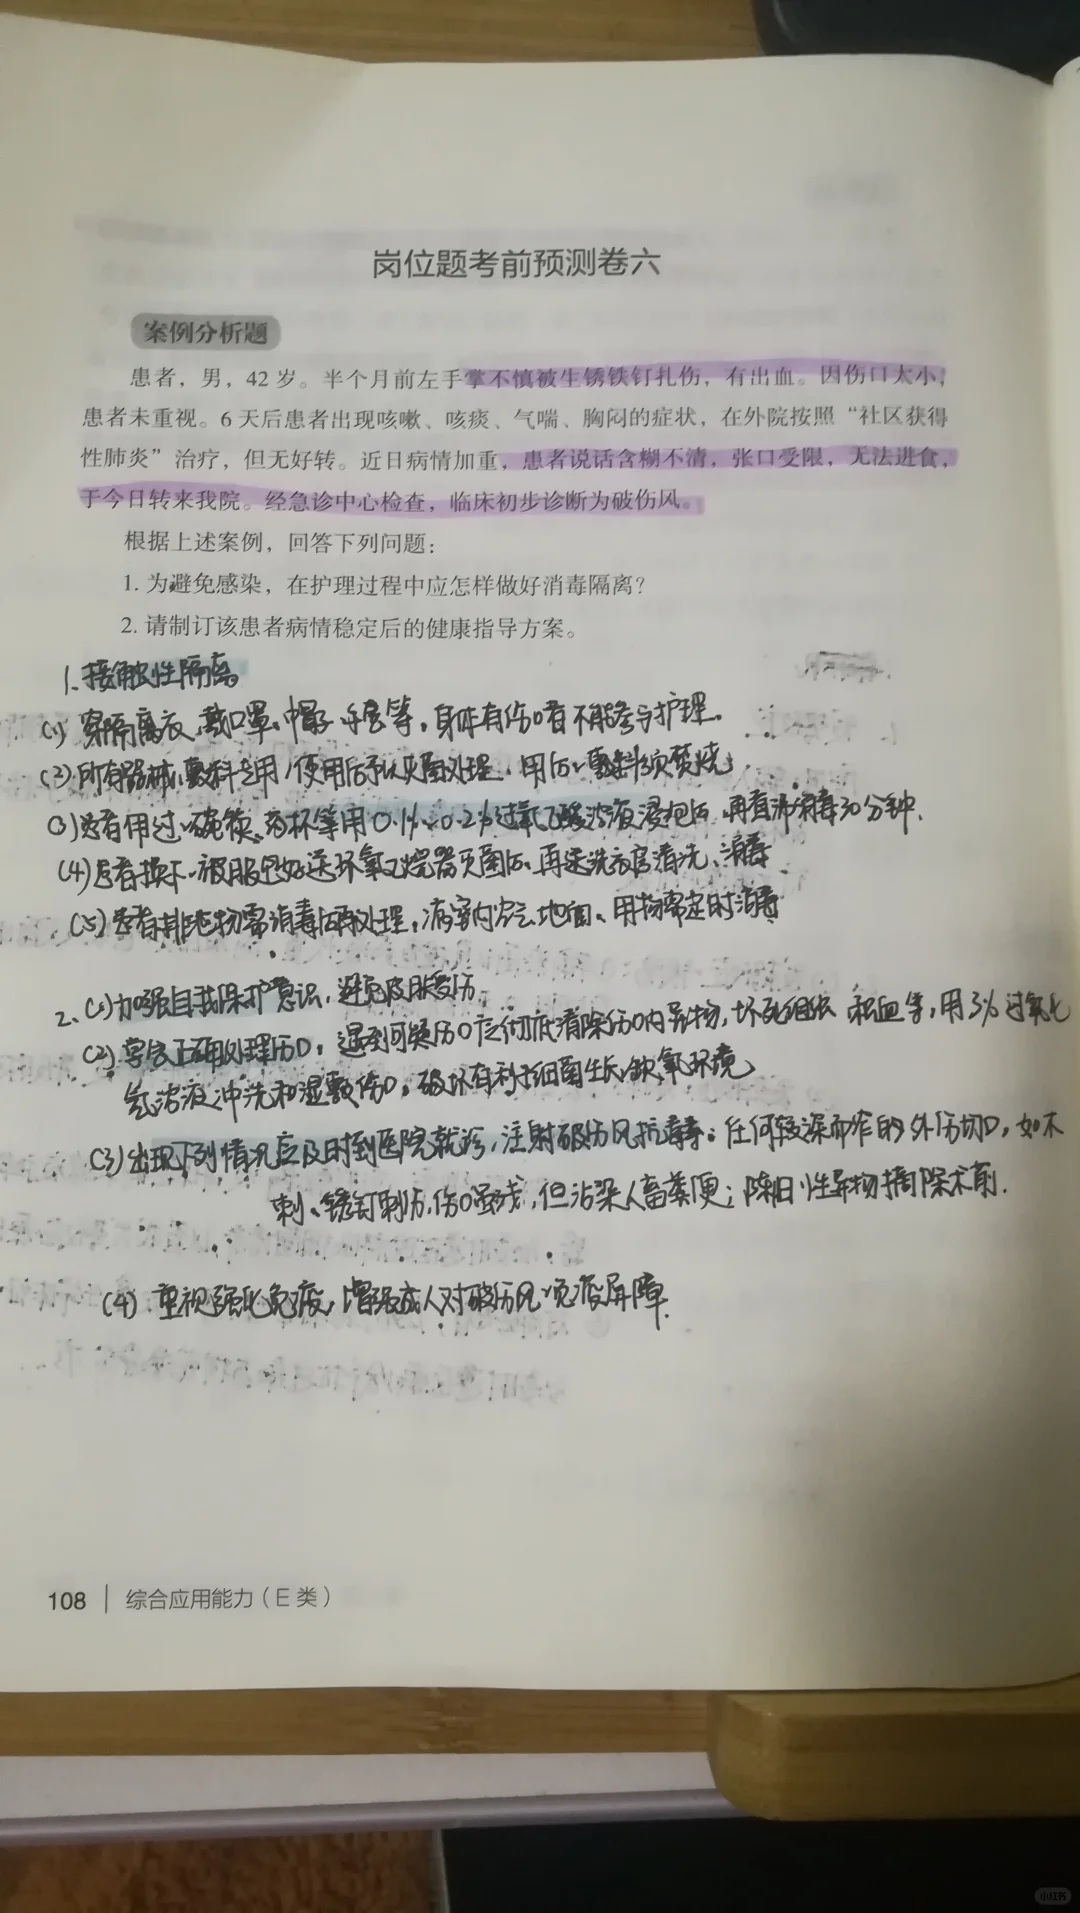 岗位题考前预测卷六
案例分析题
患者，男，42岁。半个月前左手掌不慎被生锈铁钉扎伤，有出血。因伤口太小，
患者未重视。6天后患者出现咳嗽、咳痰、气喘、胸闷的症状，在外院按照“社区获得
性肺炎”治疗，但无好转。近日病情加重，患者说话含糊不清，张口受限，无法进食，
于今日转来我院。经急诊中心检查，临床初步诊断为破伤风。
根据上述案例，回答下列问题：
1. 为避免感染，在护理过程中应怎样做好消毒隔离？
2. 请制订该患者病情稳定后的健康指导方案。
1、接触性隔离
(1) 穿隔离衣、戴口罩、帽子、手套等，身体有伤口者不能参与护理。
(2) 所有器械、敷料专用，使用后予以灭菌处理，用后、敷料须焚烧
(3) 患者用过、碗筷、药杯等用0.1%~0.2%过氧乙酸溶液浸泡后，再煮沸消毒30分钟.
(4) 患者换下、被服包好送环氧乙烷器灭菌后、再送洗衣房清洗、消毒
(5) 患者排泄物需消毒后再处理，病室内空气、地面、用物需定时消毒
2、(1) 加强自我保护意识，避免皮肤受伤.
(2) 学会正确处理伤口，遇到可疑伤口应彻底清除伤口内异物，坏死组织 积血等，用3%过氧化
氢溶液冲洗和湿敷伤口，破坏有利于细菌生长、缺氧环境
(3) 出现下列情况应及时到医院就诊，注射破伤风抗毒素：任何较深而窄的外伤切口，如木
刺、锈钉刺伤，伤口虽浅，但沾染人畜粪便；陈旧性异物摘除术前.
(4) 重视强化免疫，增强成人对破伤风、免疫屏障.
108 | 综合应用能力（E 类）
小红书